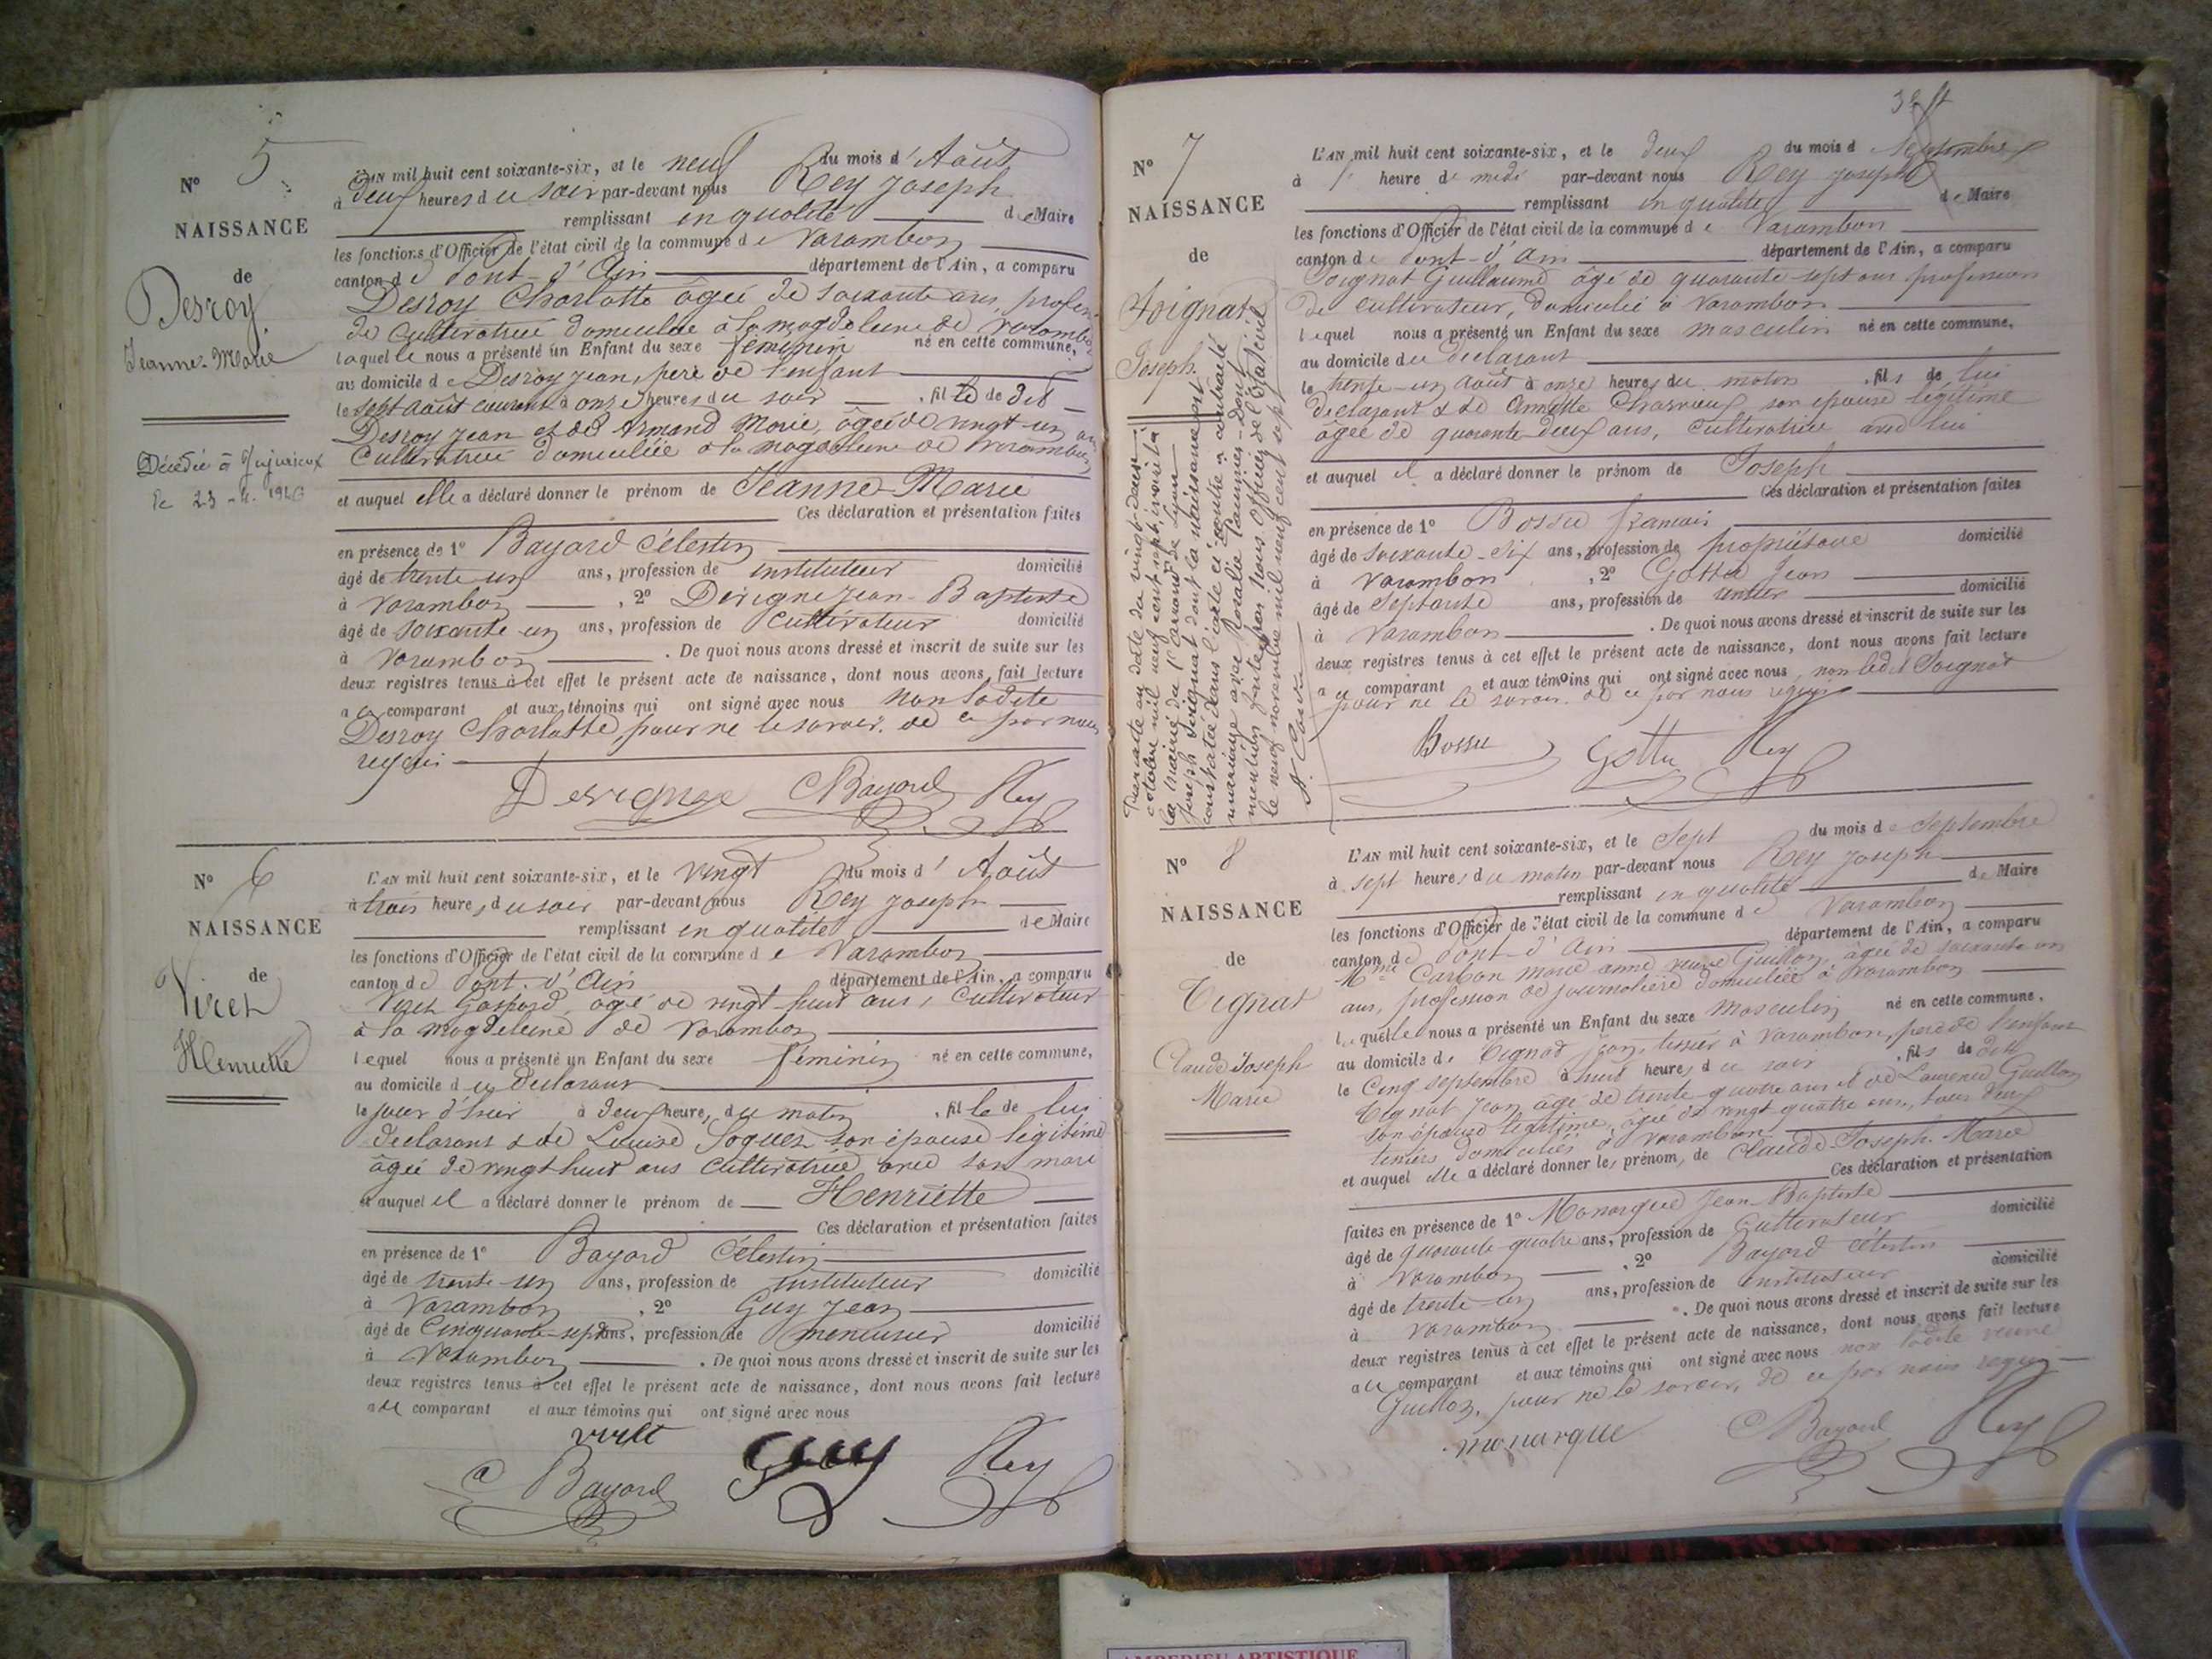 Nº 5
NAISSANCE
de
Desroy
Jeanne-Marie
Décédée à Jujurieux
le 23-4-1946
L'AN mil huit cent soixante-six, et le neuf du mois d'Août
à deux heures du soir par-devant nous Rey Joseph
remplissant en qualité de Maire
les fonctions d'Officier de l'état civil de la commune de Varambon
canton de Pont-d'Ain département de l'Ain, a comparu
Desroy Charlotte âgée de soixante ans, profession
de cultivatrice domiciliée à la magdeleine de Varambon
laquelle nous a présenté un Enfant du sexe féminin né en cette commune,
au domicile de Desroy Jean, père de l'enfant
le sept août courant à onze heures du soir , fille de dit
Desroy Jean et de Armand Marie, âgée de vingt-un ans
Cultivatrice domiciliée à la magdeleine de Varambon
et auquel elle a déclaré donner le prénom de Jeanne-Marie
Ces déclaration et présentation faites
en présence de 1º Bayard Célestin
âgé de trente un ans, profession de instituteur domicilié
à Varambon , 2º Derigne Jean-Baptiste
âgé de soixante-un ans, profession de cultivateur domicilié
à Varambon . De quoi nous avons dressé et inscrit de suite sur les
deux registres tenus à cet effet le présent acte de naissance, dont nous avons fait lecture
a la comparant et aux témoins qui ont signé avec nous non ladite
Desroy Charlotte, pour ne le savoir, de ce par nous
requis
Derigne CBayard Rey
Nº 6
NAISSANCE
de
Viret
Henriette
L'AN mil huit cent soixante-six, et le vingt du mois d'Août
à trois heures du soir par-devant nous Rey Joseph
remplissant en qualité de Maire
les fonctions d'Officier de l'état civil de la commune de Varambon
canton de Pont-d'Ain département de l'Ain, a comparu
Viret Gaspard, âgé de vingt-huit ans, cultivateur
à la magdeleine de Varambon
lequel nous a présenté un Enfant du sexe féminin né en cette commune,
au domicile du déclarant
le jour d'hier à deux heures du matin , fille de lui
déclarant & de Louise Soquet son épouse légitime
âgée de vingt huit ans cultivatrice avec son mari
et auquel il a déclaré donner le prénom de Henriette
Ces déclaration et présentation faites
en présence de 1º Bayard Célestin
âgé de trente-un ans, profession de instituteur domicilié
à Varambon , 2º Guy Jean
âgé de Cinquante-sept ans, profession de menuisier domicilié
à Varambon . De quoi nous avons dressé et inscrit de suite sur les
deux registres tenus à cet effet le présent acte de naissance, dont nous avons fait lecture
au comparant et aux témoins qui ont signé avec nous
virét
CBayard Guy Rey
Nº 7
NAISSANCE
de
Soignat
Joseph
Transcrite en date du vingt-deux
octobre mil neuf cent sept, inscrit à
la mairie du 1er arrond. de Lyon
Joseph Soignat dont la naissance est
constatée dans l'acte ci-contre a contracté
mariage avec Rosalie dont
mention faite par nous Officier de l'état civil
le neuf novembre mil neuf cent sept
L'AN mil huit cent soixante-six, et le deux du mois de Septembre
à 1 heure de midi par-devant nous Rey Joseph
remplissant en qualité de Maire
les fonctions d'Officier de l'état civil de la commune de Varambon
canton de Pont-d'Ain département de l'Ain, a comparu
Soignat Guillaume âgé de quarante-sept ans profession
de cultivateur, domicilié à Varambon
lequel nous a présenté un Enfant du sexe masculin né en cette commune,
au domicile du déclarant
le trente-un août à onze heures du matin , fils de lui
déclarant & de Annette Charveux son épouse légitime
âgée de quarante-deux ans, cultivatrice avec lui
et auquel il a déclaré donner le prénom de Joseph
Ces déclaration et présentation faites
en présence de 1º Bossu françois
âgé de soixante-dix ans, profession de propriétaire domicilié
à Varambon , 2º Gottu Jean
âgé de septante ans, profession de rentier domicilié
à Varambon . De quoi nous avons dressé et inscrit de suite sur les
deux registres tenus à cet effet le présent acte de naissance, dont nous avons fait lecture
au comparant et aux témoins qui ont signé avec nous, non ledit Soignat
pour ne le savoir. de ce par nous requis
Bossu Gottu Rey
Nº 8
NAISSANCE
de
Tignat
Claude Joseph
Marie
L'AN mil huit cent soixante-six, et le sept du mois de Septembre
à sept heures du matin par-devant nous Rey Joseph
remplissant en qualité de Maire
les fonctions d'Officier de l'état civil de la commune de Varambon
canton de Pont-d'Ain département de l'Ain, a comparu
Mme Carbon marie anne veuve Guillon, âgée de soixante un
ans, profession de journalière domiciliée à Varambon
laquelle nous a présenté un Enfant du sexe Masculin né en cette commune,
au domicile de Tignat Jean, tissier à Varambon, père de l'enfant
le Cinq septembre à huit heures du soir , fils de dit
Tignat Jean âgé de trente quatre ans et de Laurence Guillon
son épouse légitime, âgée de vingt quatre ans, tous deux
tissiers domiciliés à Varambon
et auquel elle a déclaré donner les prénoms de Claude-Joseph-Marie
Ces déclaration et présentation
faites en présence de 1º Monarque Jean-Baptiste
âgé de quarante-quatre ans, profession de Cultivateur domicilié
à Varambon , 2º Bayard Célestin
âgé de trente un ans, profession de instituteur domicilié
à Varambon . De quoi nous avons dressé et inscrit de suite sur les
deux registres tenus à cet effet le présent acte de naissance, dont nous avons fait lecture
a la comparant et aux témoins qui ont signé avec nous non ladite veuve
Guillon, pour ne le savoir, de ce par nous requis
monarque CBayard Rey
AMBERIEU ARTISTIQUE